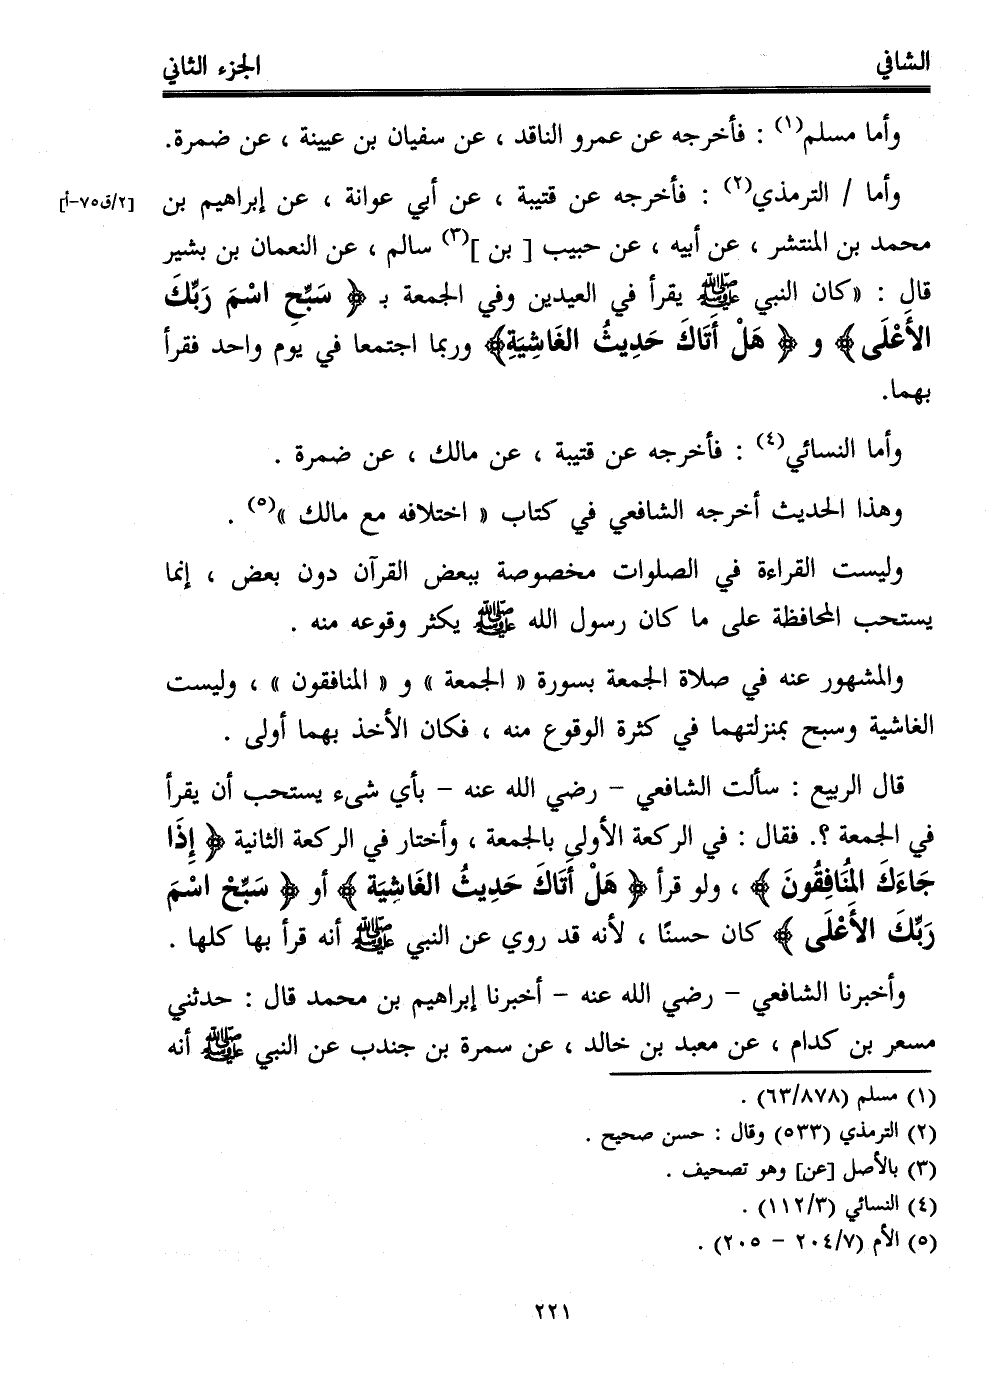 الشافي الجزء الثاني
وأما مسلم(١) : فأخرجه عن عمرو الناقد ، عن سفيان بن عيينة ، عن ضمرة.
وأما / الترمذي(٢) : فأخرجه عن قتيبة ، عن أبي عوانة ، عن إبراهيم بن [٢/ق٧٥-أ]
محمد بن المنتشر ، عن أبيه ، عن حبيب [ بن ](٣) سالم ، عن النعمان بن بشير
قال : «كان النبي ﷺ يقرأ في العيدين وفي الجمعة بـ ﴿ سَبِّحِ اسْمَ رَبِّكَ
الأَعْلَى ﴾ و ﴿ هَلْ أَتَاكَ حَدِيثُ الغَاشِيَةِ﴾ وربما اجتمعا في يوم واحد فقرأ
بهما.
وأما النسائي(٤) : فأخرجه عن قتيبة ، عن مالك ، عن ضمرة .
وهذا الحديث أخرجه الشافعي في كتاب « اختلافه مع مالك »(٥) .
وليست القراءة في الصلوات مخصوصة ببعض القرآن دون بعض ، إنما
يستحب المحافظة على ما كان رسول الله ﷺ يكثر وقوعه منه .
والمشهور عنه في صلاة الجمعة بسورة « الجمعة » و « المنافقون » ، وليست
الغاشية وسبح بمنزلتهما في كثرة الوقوع منه ، فكان الأخذ بهما أولى .
قال الربيع : سألت الشافعي - رضي الله عنه - بأي شىء يستحب أن يقرأ
في الجمعة ؟. فقال : في الركعة الأولى بالجمعة ، وأختار في الركعة الثانية ﴿ إِذَا
جَاءَكَ المُنَافِقُونَ ﴾ ، ولو قرأ ﴿ هَلْ أَتَاكَ حَدِيثُ الغَاشِيَة ﴾ أو ﴿ سَبِّحْ اسْمَ
رَبِّكَ الأَعْلَى ﴾ كان حسنًا ، لأنه قد روي عن النبي ﷺ أنه قرأ بها كلها .
وأخبرنا الشافعي - رضي الله عنه - أخبرنا إبراهيم بن محمد قال : حدثني
مسعر بن كدام ، عن معبد بن خالد ، عن سمرة بن جندب عن النبي ﷺ أنه
(١) مسلم (٦٣/٨٧٨) .
(٢) الترمذي (٥٣٣) وقال : حسن صحيح .
(٣) بالأصل [عن] وهو تصحيف .
(٤) النسائي (١١٢/٣) .
(٥) الأم (٢٠٤/٧ - ٢٠٥) .
٢٢١